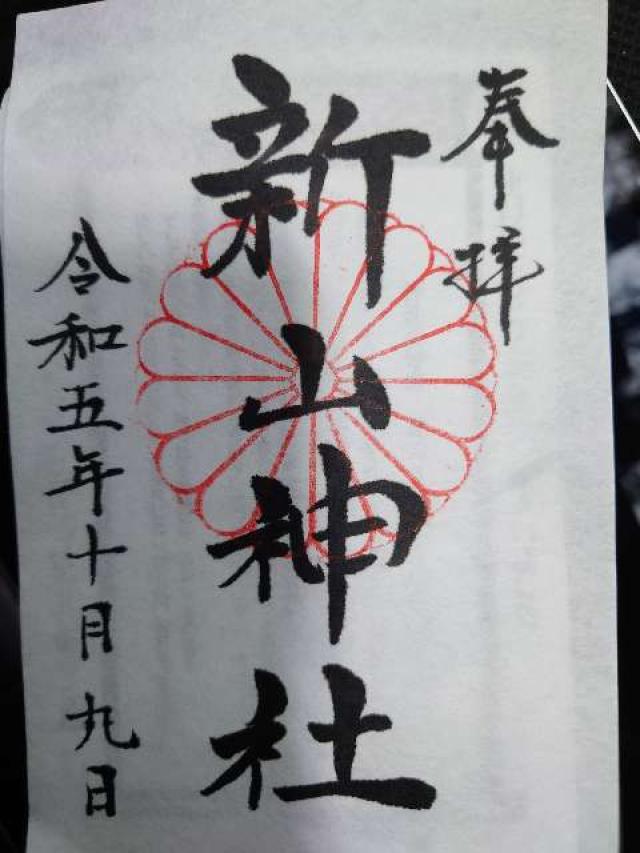 奉拝
新山神社
令和五年十月九日